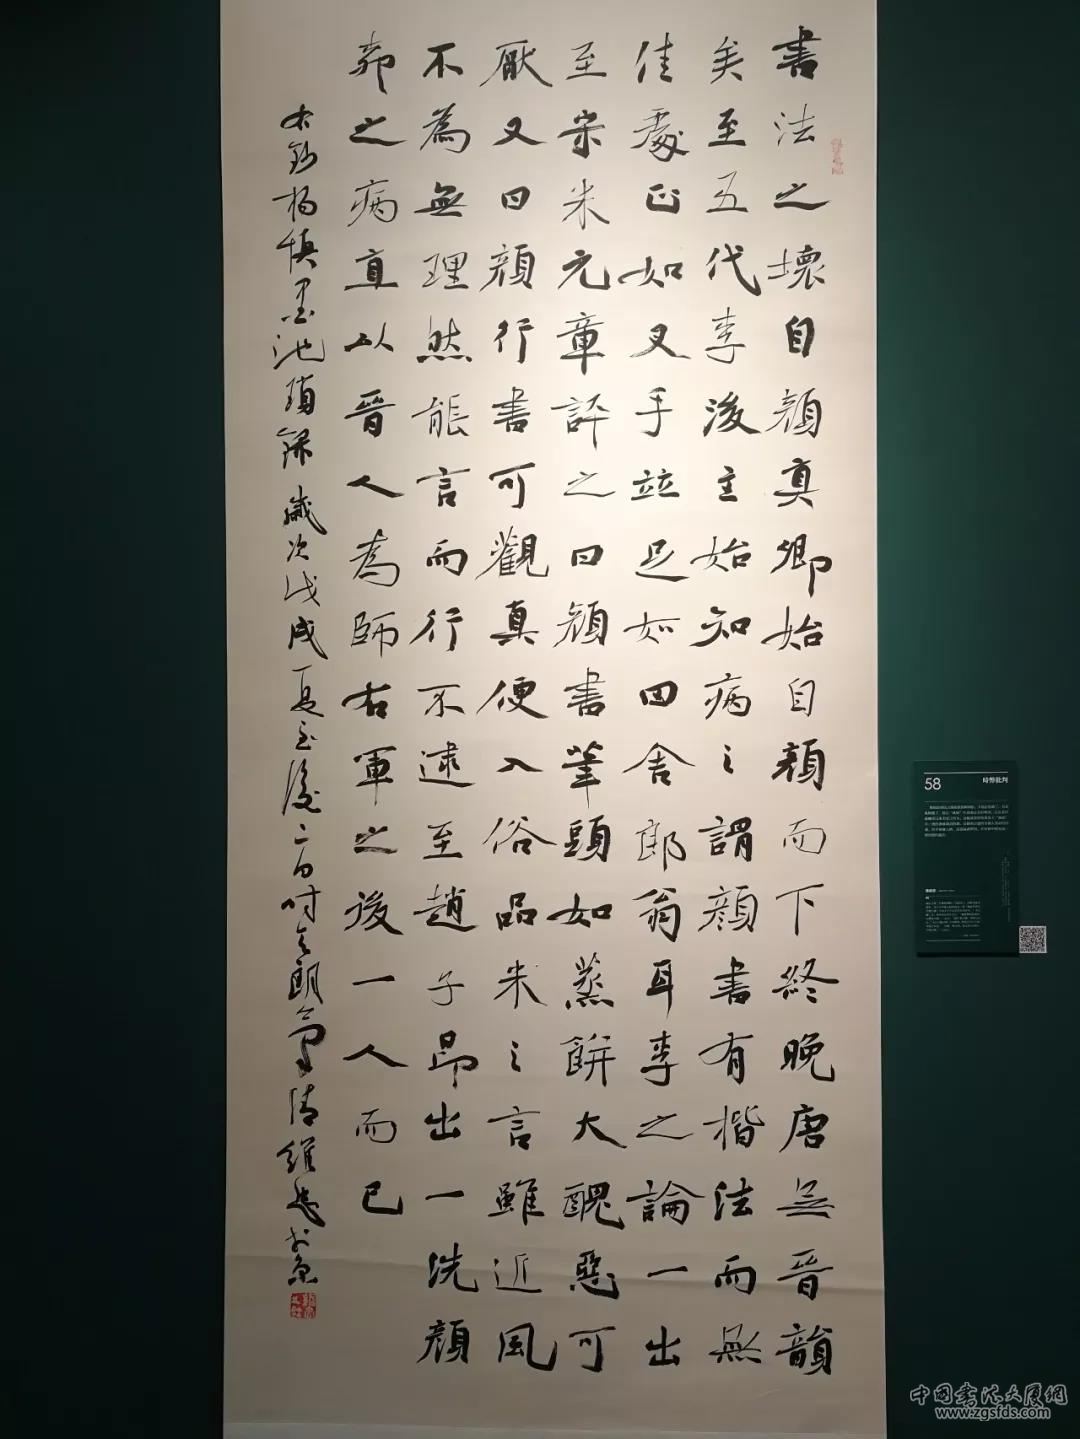 書法之壞自顏真卿始自顏而下終晚唐無晉韻
矣至五代李後主始知病之謂顏書有楷法而無
佳處正如叉手並足如田舍郎翁耳李之論一出
至宋米元章評之曰顏書筆頭如蒸餅大醜惡可
厭又曰顏行書可觀真便入俗品米之言雖近風
不為無理然能言而行不逮至趙子昂出一洗顏
柳之病直以晉人為師右軍之後一人而已
右鈔楊慎墨池瑣錄歲次戊戌夏至後二日時天朗氣清維
58
時弊批判
中國書法大廈網
www.zgsfds.com